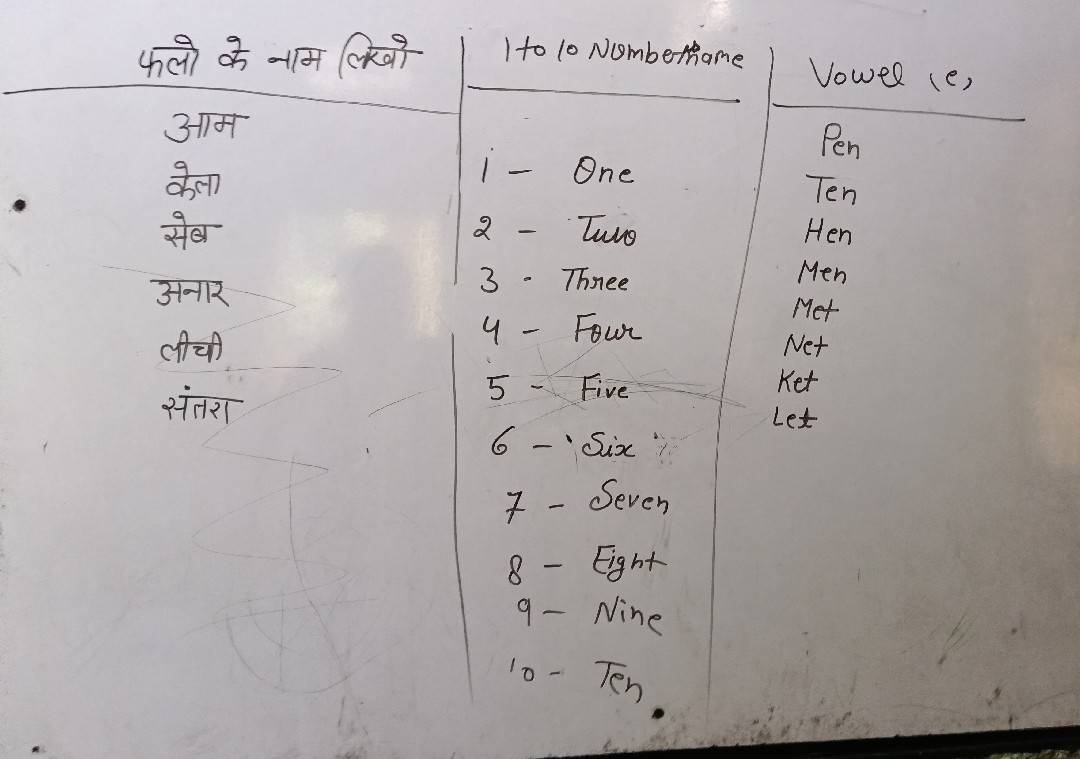 फलो के नाम लिखो
आम
केला
सेब
अनार
लीची
संतरा
1 to 10 Number Name
1 - One
2 - Two
3 - Three
4 - Four
5 - Five
6 - Six
7 - Seven
8 - Eight
9 - Nine
10 - Ten
Vowel (e)
Pen
Ten
Hen
Men
Met
Net
Ket
Let